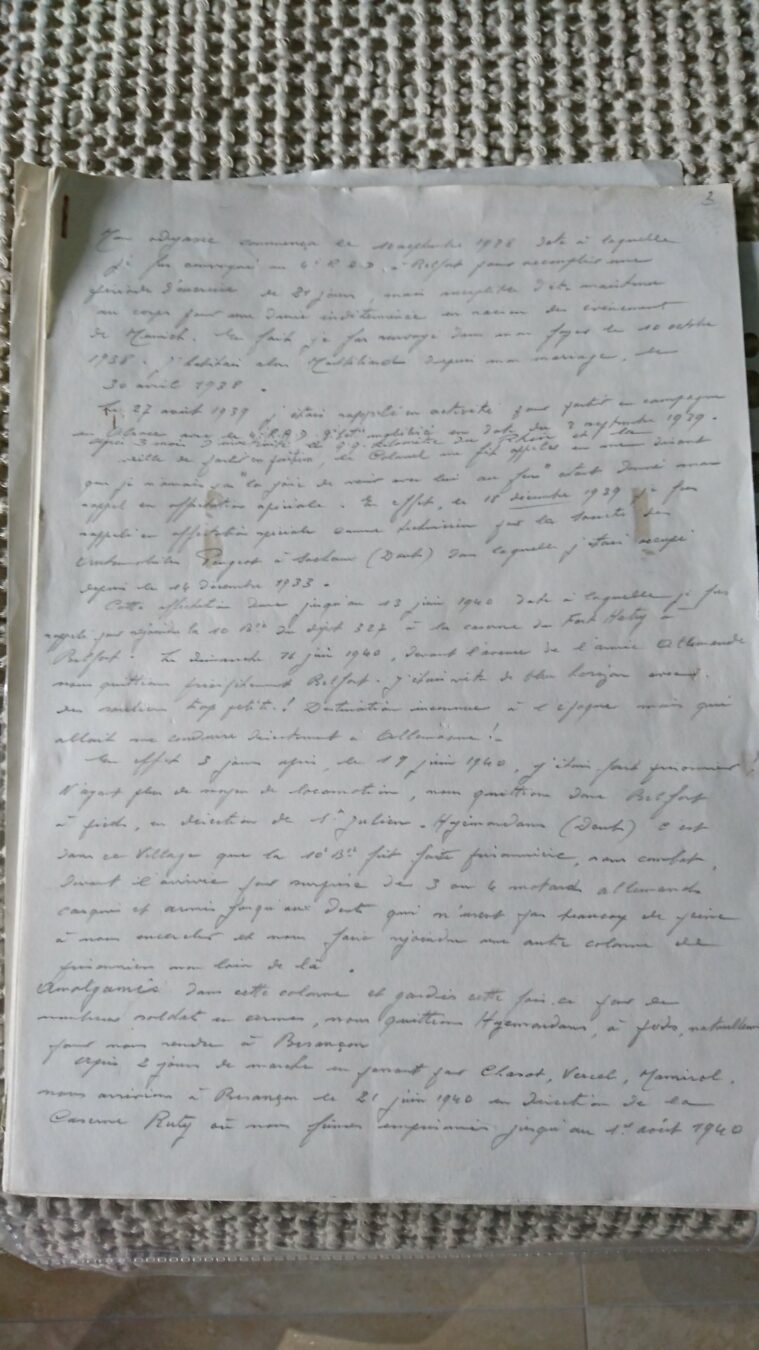 2
Mon odyssée commença le 10 septembre 1938 date à laquelle
je fus convoqué au 4e R.A.D. à Belfort pour accomplir une
période d'exercice de 21 jours, mais susceptible d'être maintenue
au corps pour une durée indéterminée en raison des évènements
de Munich. En fait, je fus renvoyé dans mon foyer le 10 octobre
1938. J'habitais alors depuis mon mariage, le
30 avril 1938.
Le 27 août 1939 j'étais rappelé en activité pour partir en campagne
en Alsace avec le 4e R.A.D. mobilisé en date du 2 septembre 1939.
après 3 mois kilomètres du Rhin et la
veille de partir en position, le Colonel me fit appeler en me disant
que je n'aurais pas "la joie de venir avec lui au feu" étant donné mon
rappel en affectation spéciale. En effet, le 18 décembre 1939 je fus
rappelé en affectation spéciale comme technicien par la Société des
Automobiles Peugeot à Sochaux (Doubs) dans laquelle j'étais occupé
depuis le 14 décembre 1933.
Cette affectation dura jusqu'au 13 juin 1940 date à laquelle je fus
rappelé pour rejoindre la 10 Bie du dépôt 327 à la caserne du Fort Hatry à
Belfort. Le dimanche 16 juin 1940, devant l'avance de l'armée Allemande
nous quittions précipitamment Belfort. J'étais vêtu de bleu horizon avec
des souliers trop petits! Destination inconnue à l'époque mais qui
allait me conduire directement en Allemagne!
En effet 3 jours après, le 19 juin 1940, j'étais fait prisonnier!
N'ayant plus de moyen de locomotion, nous quittions donc Belfort
à pieds, en direction de St Julien - Hyémondans (Doubs) c'est
dans ce Village que la 10e Bie fut faite prisonnière, sans combat,
devant l'arrivée par surprise de 3 ou 4 motards allemands
casqués et armés jusqu'aux dents qui n'eurent pas beaucoup de peine
à nous encercler et nous faire rejoindre une autre colonne de
prisonniers non loin de là.
Amalgamés dans cette colonne et gardés cette fois-ci par de
nombreux soldats en armes, nous quittions Hyémondans, à pieds, naturellement
pour nous rendre à Besançon
Après 2 jours de marche en passant par Clerval, Vercel, Mamirolle,
nous arrivions à Besançon le 21 juin 1940 en direction de la
Caserne Ruty où nous fûmes emprisonnés jusqu'au 1er août 1940